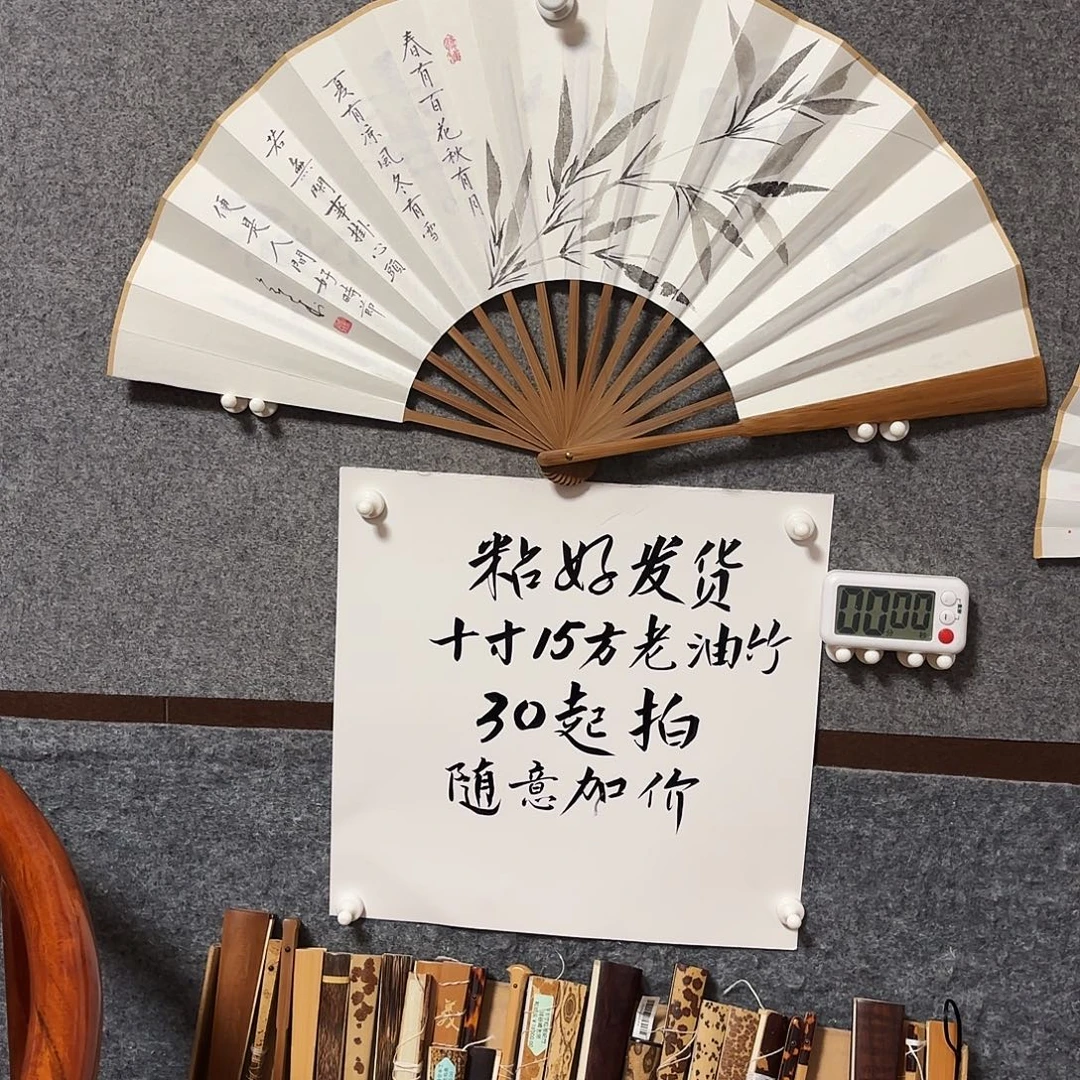 春有百花秋有月
夏有凉風冬有雪
若無閑事掛心頭
便是人間好時節
粘好发货
十寸15方老油竹
30起拍
随意加价
00 00